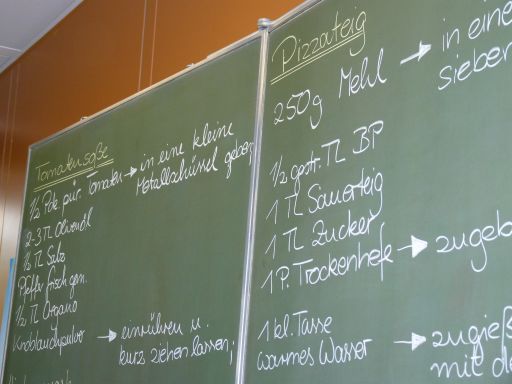 Tomatensoße
1/2 Pck pür. Tomaten → in eine kleine
Metallschüssel geben;
2-3 TL Olivenöl
1/2 TL Salz
Pfeffer frisch gem.
1/2 TL Oregano
Knoblauchpulver → einrühren u.
kurz ziehen lassen;
Pizzateig
250g Mehl → in eine
sieben
1/2 gestr. TL BP
1 TL Sauerteig
1 TL Zucker
1 P. Trockenhefe → zugeb
1 kl. Tasse
warmes Wasser → zugieß
mit de